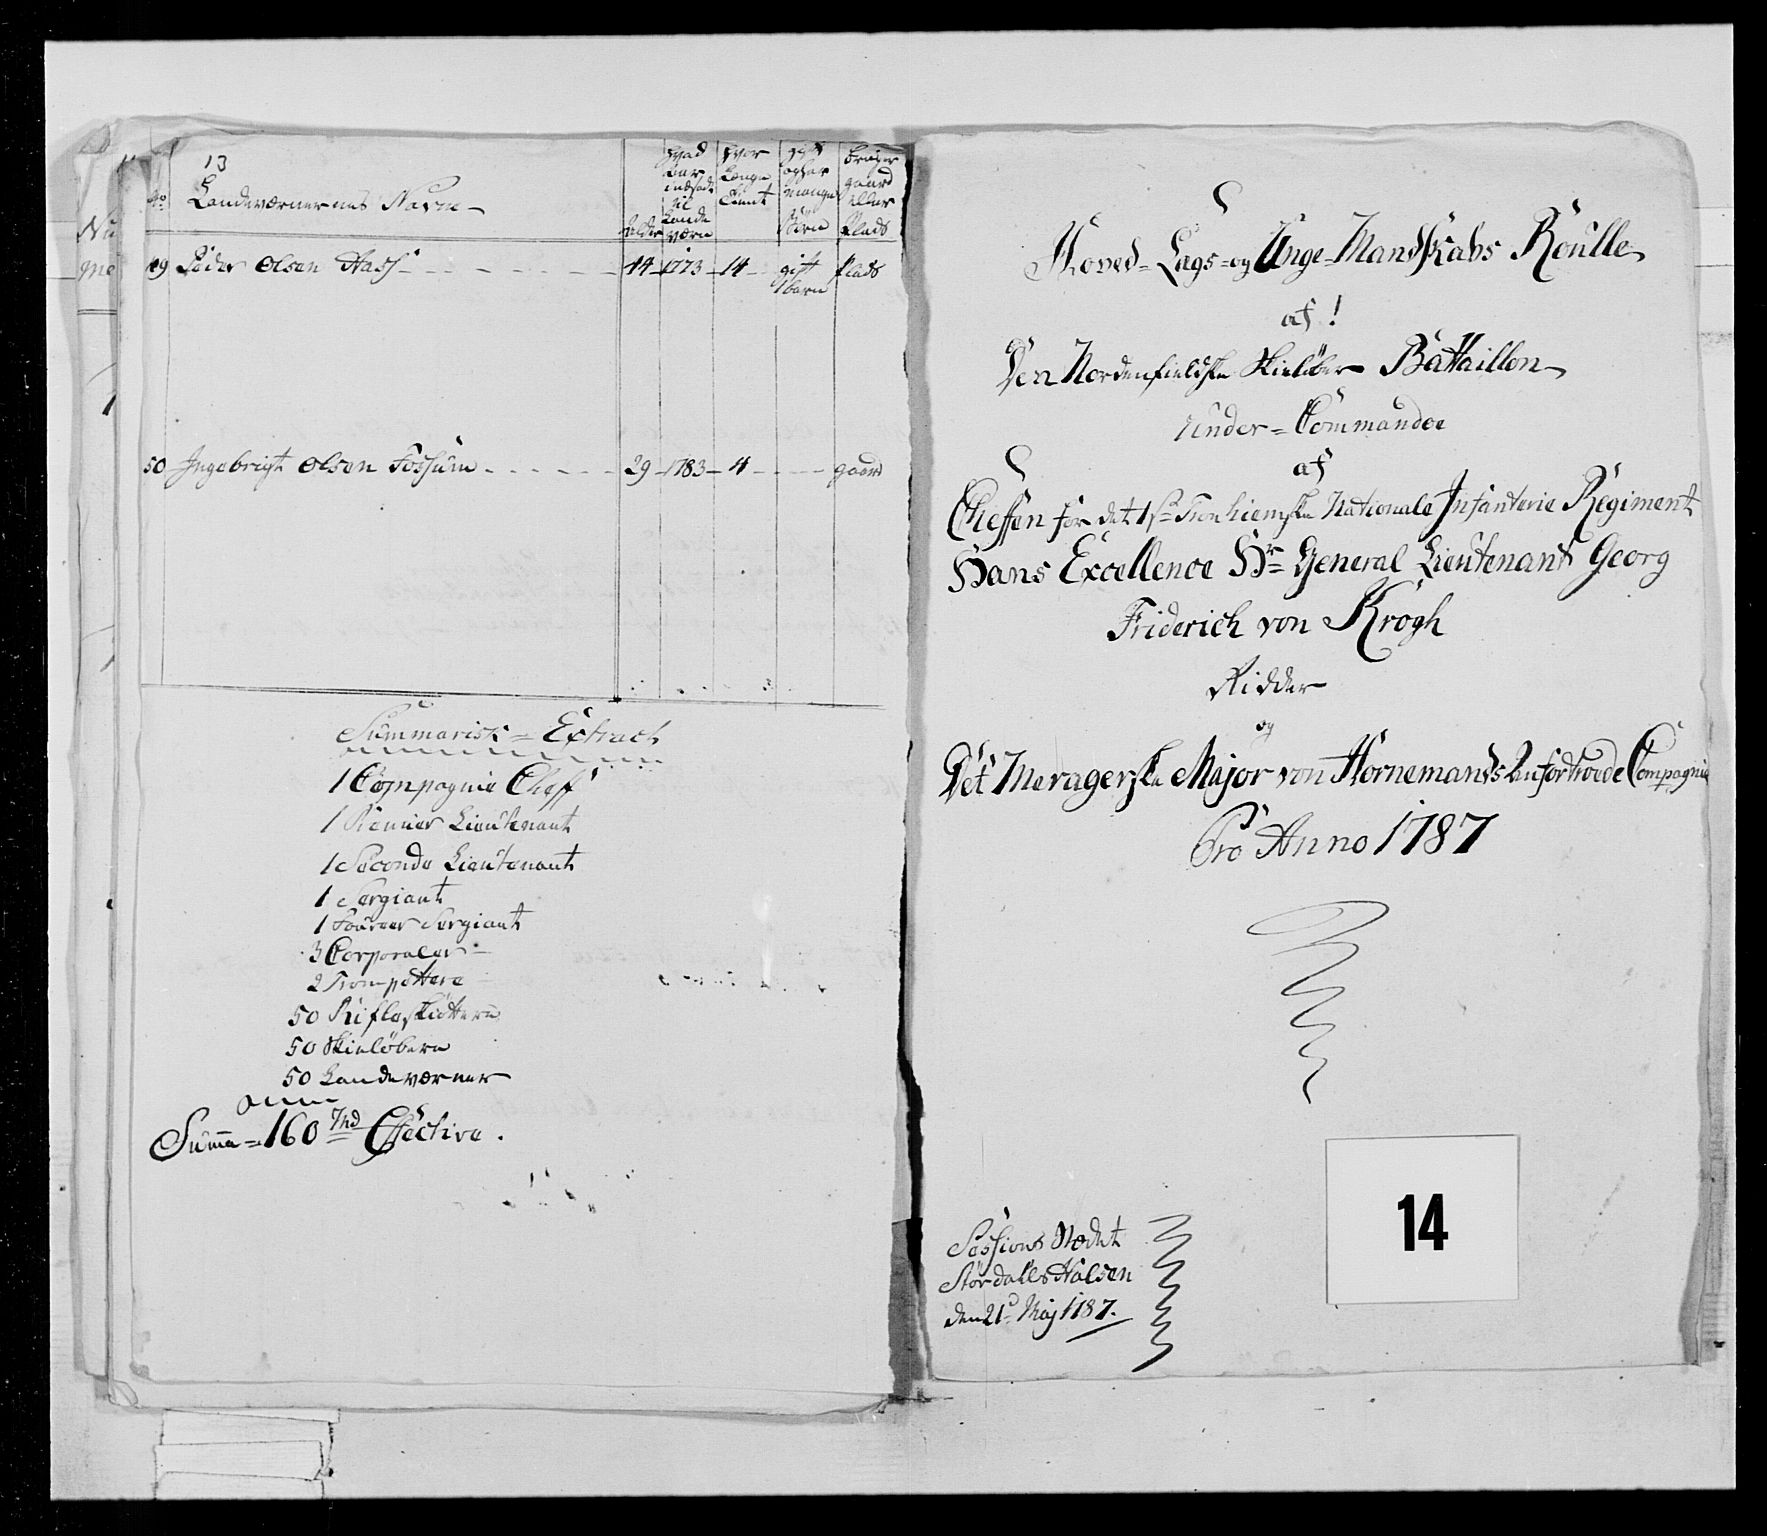 13
No
Landeværnernes Navne
Alder
hvad
Aar
indsadt
til
Lande
værn
hvor
længe
tient
gift
og har
mange
Börn
bruger
gaard
eller
Plads
49 Peder Olsen Hass 44 1773 14 gift plads
1 barn
50 Ingebrigt Olsen Fossum 29 1783 4 gaard
Summarisk = Extract
1 Compagnie Cheff
1 Premier Lieutenant
1 Seconde Lieutenant
1 Sergiant
1 Foureer Sergiant
3 Corporaler
2 Trompettere
50 Rifleskÿttere
50 Skielöbere
50 Landeværner
Summa = 160 Md Effective.
Hoved-Lægs-og Unge-Mandskabs Roulle
af!
Den Nordenfieldske Skielöber Battaillon
under=Commandoe
af
Cheffen for det 1ste Tronhiemske Nationale Infanterie Regiment
Hans Excellence Hr General Lieutenant Georg
Friderich von Krogh
Ridder
og
Det Meragerske Major von Hornemands anfortroede Compagnie
Pro Anno 1787
14
Sessions Stædet
Stördalls Halsen
den 21d Maj 1787.